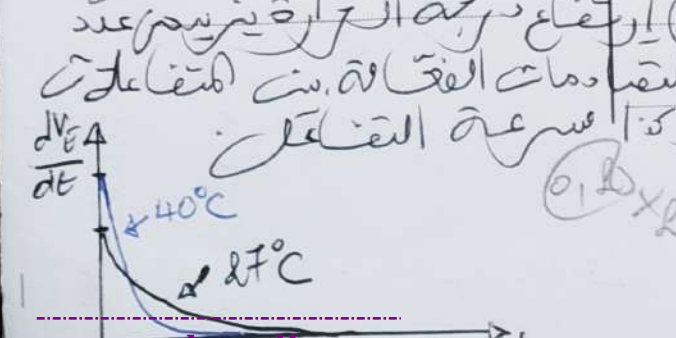 إرتفاع درجة الحرارة يزيد من عدد
التصادمات الفعالة بين المتفاعلات
كذا سرعة التفاعل
dV_E/dt
40°C
27°C
0,20 ×
t